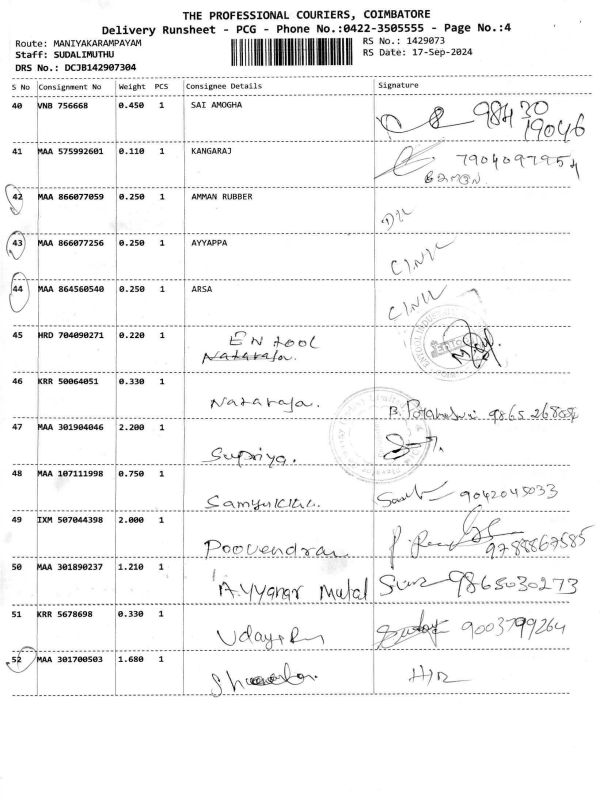 THE PROFESSIONAL COURIERS, COIMBATORE
Delivery Runsheet - PCG - Phone No.:0422-3505555 - Page No.:4
Route: MANIYAKARAMPAYAM
Staff: SUDALIMUTHU
DRS No.: DCJB142907304
RS No.: 1429073
RS Date: 17-Sep-2024
S No Consignment No Weight PCS Consignee Details Signature
40 VNB 756668 0.450 1 SAI AMOGHA 98430
19046
41 MAA 575992601 0.110 1 KANGARAJ
42 MAA 866077059 0.250 1 AMMAN RUBBER
43 MAA 866077256 0.250 1 AYYAPPA
44 MAA 864560540 0.250 1 ARSA
45 HRD 704090271 0.220 1 ENtool
Nataraja.
46 KRR 50064051 0.330 1 Nataraja.
47 MAA 301904046 2.200 1 Supriya.
48 MAA 107111998 0.750 1 9042045033
49 IXM 507044398 2.000 1 Poovendran 9788867585
50 MAA 301890237 1.210 1 A.yyanar Metal 9865030273
51 KRR 5678698 0.330 1 9003799264
52 MAA 301700503 1.680 1